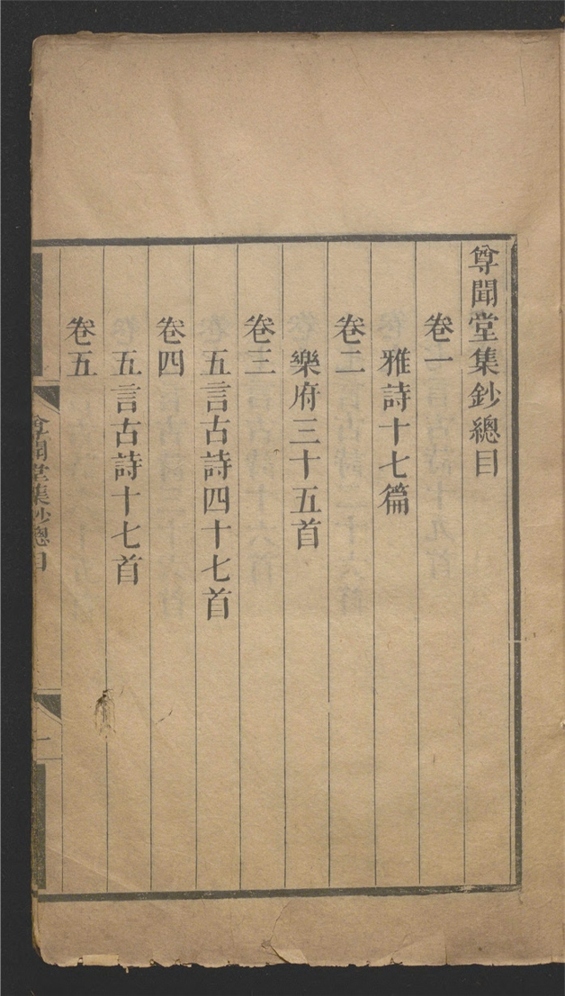 尊聞堂集鈔總目
卷一
雅詩十七篇
卷二
樂府三十五首
卷三
五言古詩四十七首
卷四
五言古詩十七首
卷五
尊聞堂集鈔總目
一